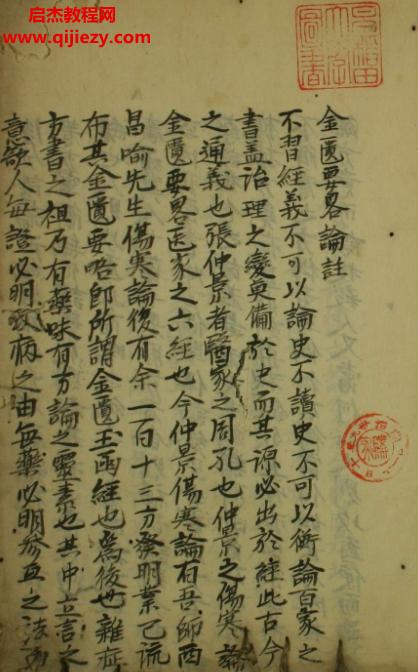 启杰教程网
www.qijiezy.com
金匱要畧論註
不習經義不可以論史不讀史不可以衡論百家之
書盖治理之變莫備於史而其源必出於經此古今
之通義也張仲景者醫家之周孔也仲景之傷寒論
金匱要畧医家之六經也今仲景傷寒論有吾師西
昌喻先生傷寒論後有余一百十三方發明業已流
布其金匱要略即所謂金匱玉函經也為後世雜症
方書之祖乃有藥味有方論之靈素也其中立言之
意欲人每證必明致病之由每藥必明參互之法